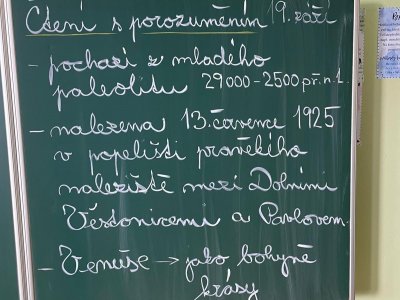 Čtení s porozuměním 19. září
- pochází z mladého
paleolitu 29000-2500 př.n.l.
- nalezena 13. července 1925
v popelišti pravěkého
naleziště mezi Dolními
Věstonicemi a Pavlovem
- Venuše → jako bohyně
krásy